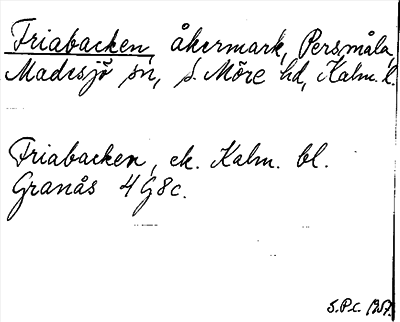 Friabacken, åkermark, Persmåla,
Madesjö sn, S. Möre hd, Kalm. l.
Friabacken, ek. Kalm. bl.
Granås 4G8c.
S.P.C. 1957.